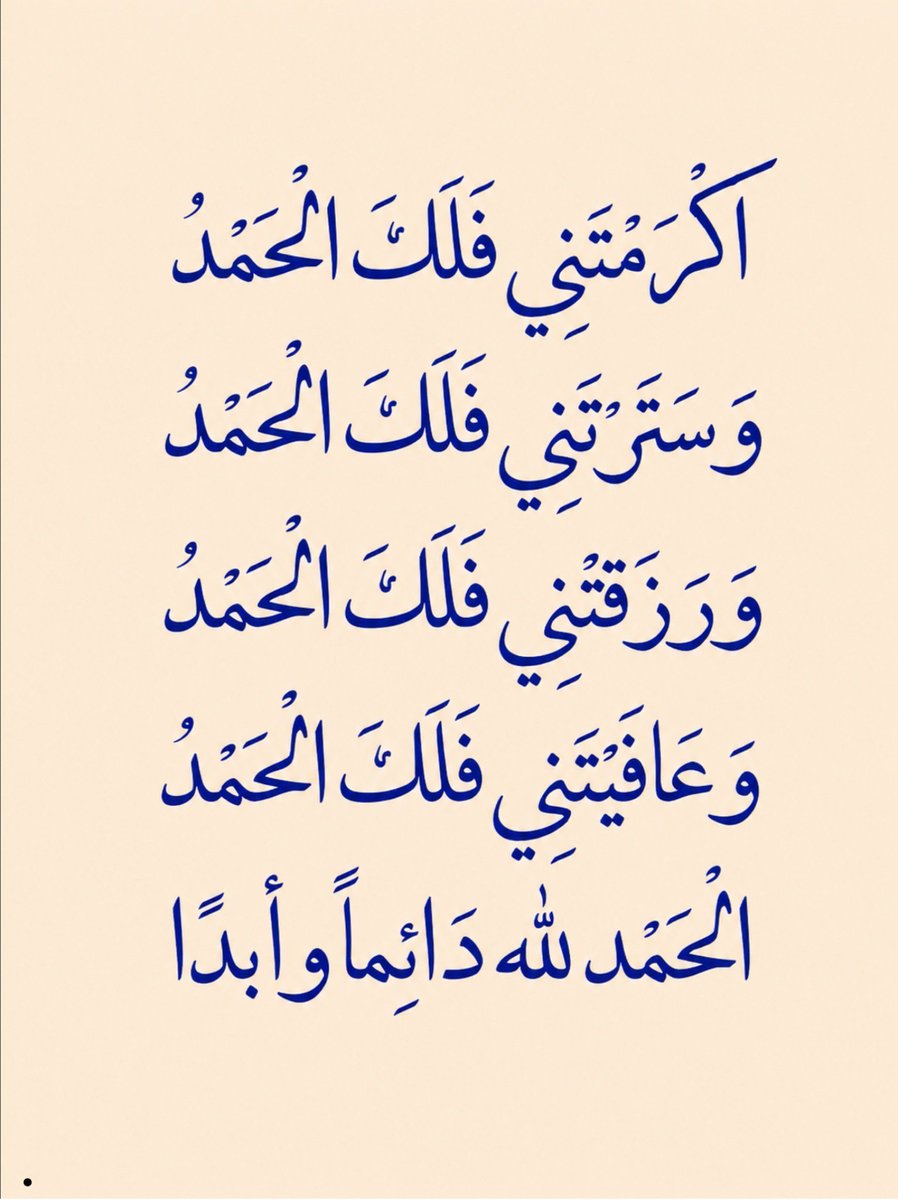 اكْرَمْتَنِي فَلَكَ الْحَمْدُ
وَسَتَرْتَنِي فَلَكَ الْحَمْدُ
وَرَزَقتْنِي فَلَكَ الْحَمْدُ
وَعَافَيْتَنِي فَلَكَ الْحَمْدُ
الْحَمْد لله دَائِماً و أبدًا